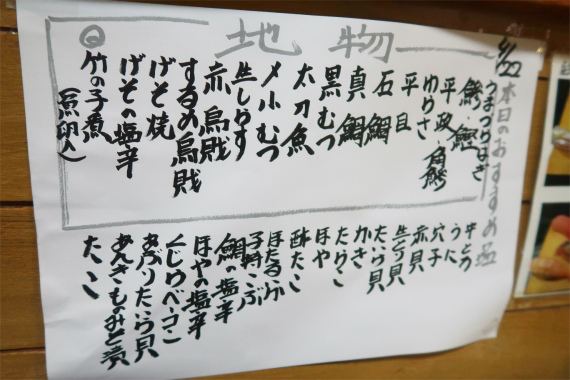 4/22
本日のおすすめ
地物
うまづらはぎ
鯵・鰹
平政・角鯵
ゆりさ
平目
石鯛
真鯛
黒むつ
太刀魚
メ小むつ
生しらす
赤烏賊
するめ烏賊
げそ焼
げその塩辛
竹の子煮
うに
穴子
赤貝
生とり貝
たいら貝
かき
たらこ
ほや
酢たこ
ほたるいか
子持こぶ
鯛の塩辛
ほやの塩辛
くじらベーコン
あぶりたいら貝
あんきものみそ漬
たこ